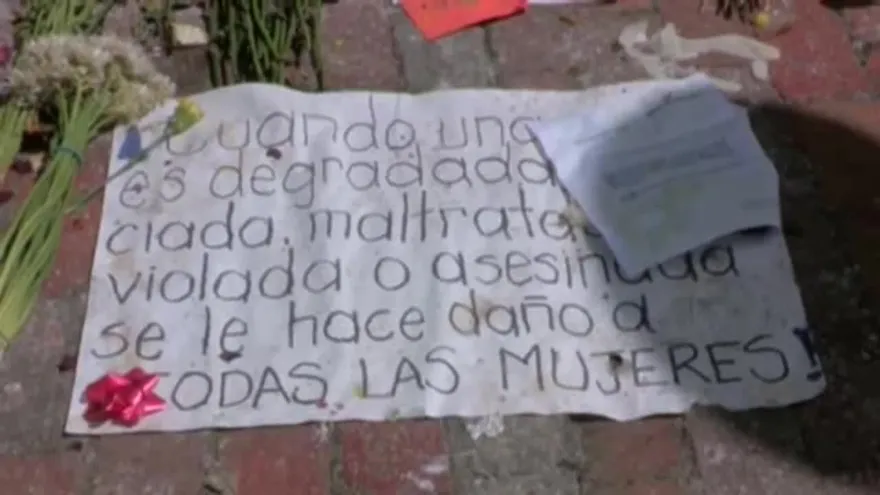 Cuando una
es degradada
ciada, maltrata
violada o asesinada
se le hace daño a
TODAS LAS MUJERES!